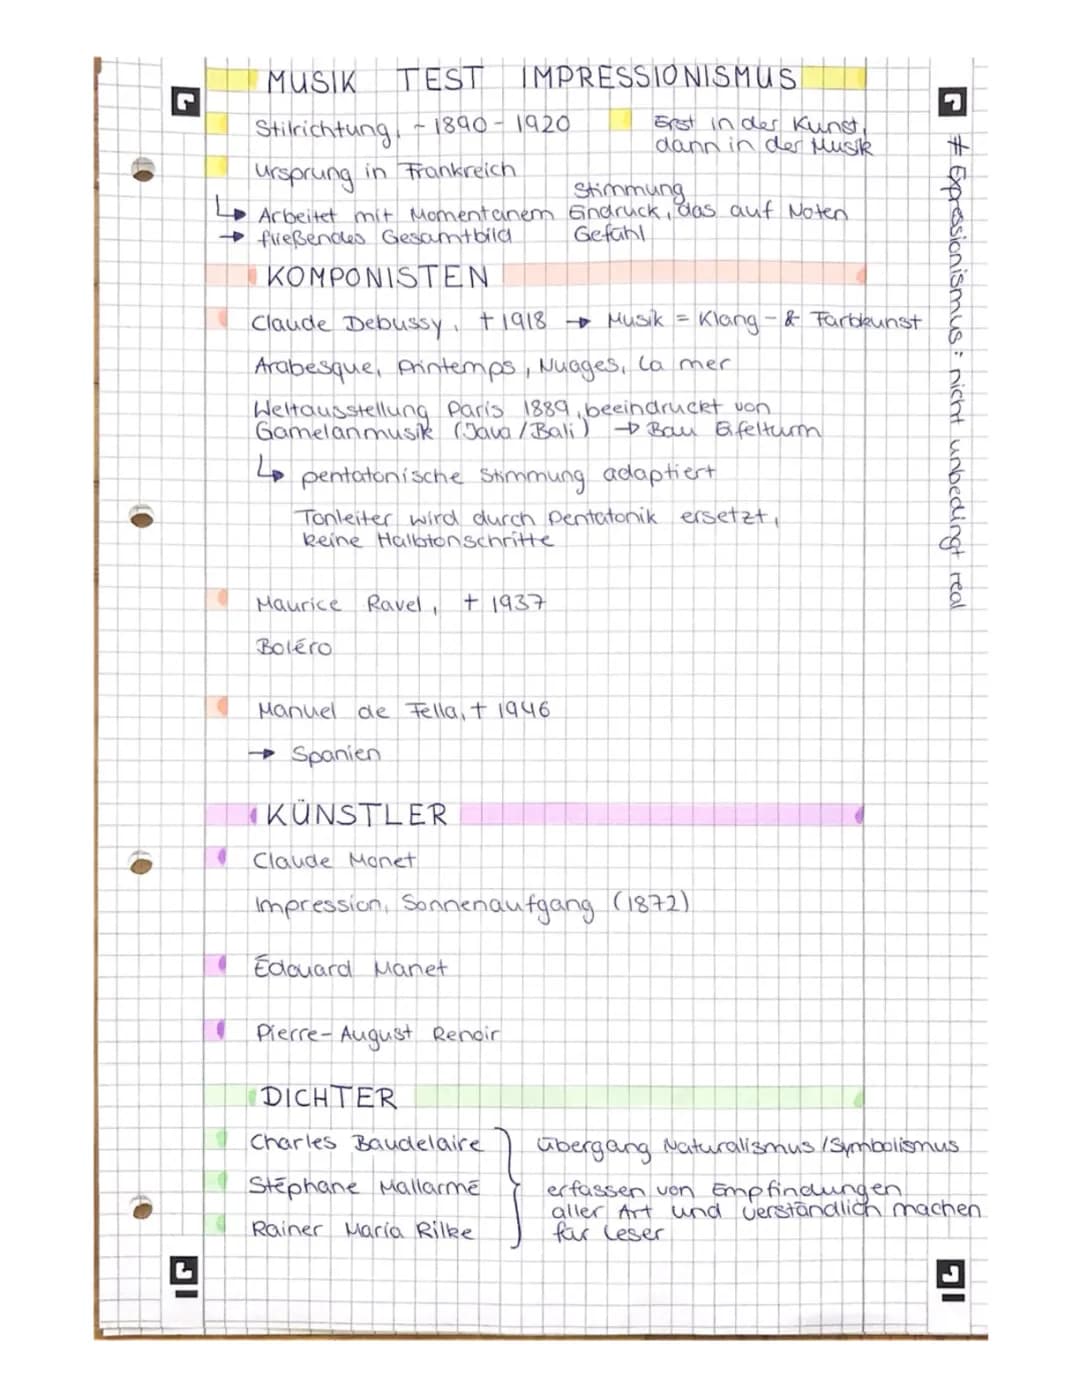 MUSIK TEST IMPRESSIONISMUS
Stilrichtung, ~ 1890 - 1920
Erst in der Kunst,
dann in der Musik
Ursprung in Frankreich
Stimmung
↳ Arbeitet mit Momentanem Eindruck, das auf Noten
→ fließendes Gesamtbild Gefühl
KOMPONISTEN
Claude Debussy, † 1918 → Musik = Klang- & Farbkunst
Arabesque, Printemps, Nuages, La mer
Weltausstellung Paris 1889, beeindruckt von
Gamelanmusik (Java / Bali) → Bau Eifelturm
↳ pentatonische Stimmung adaptiert
Tonleiter wird durch Pentatonik ersetzt,
keine Halbtonschritte
Maurice Ravel, † 1937
Boléro
Manuel de Fella, † 1946
→ Spanien
KÜNSTLER
Claude Monet
Impression, Sonnenaufgang (1872)
Édouard Manet
Pierre-August Renoir
DICHTER
Charles Baudelaire
Stéphane Mallarmé
Rainer Maria Rilke
Übergang Naturalismus / Symbolismus
erfassen von Empfindungen
aller Art und verständlich machen
für Leser
# Expressionismus: nicht unbedingt real